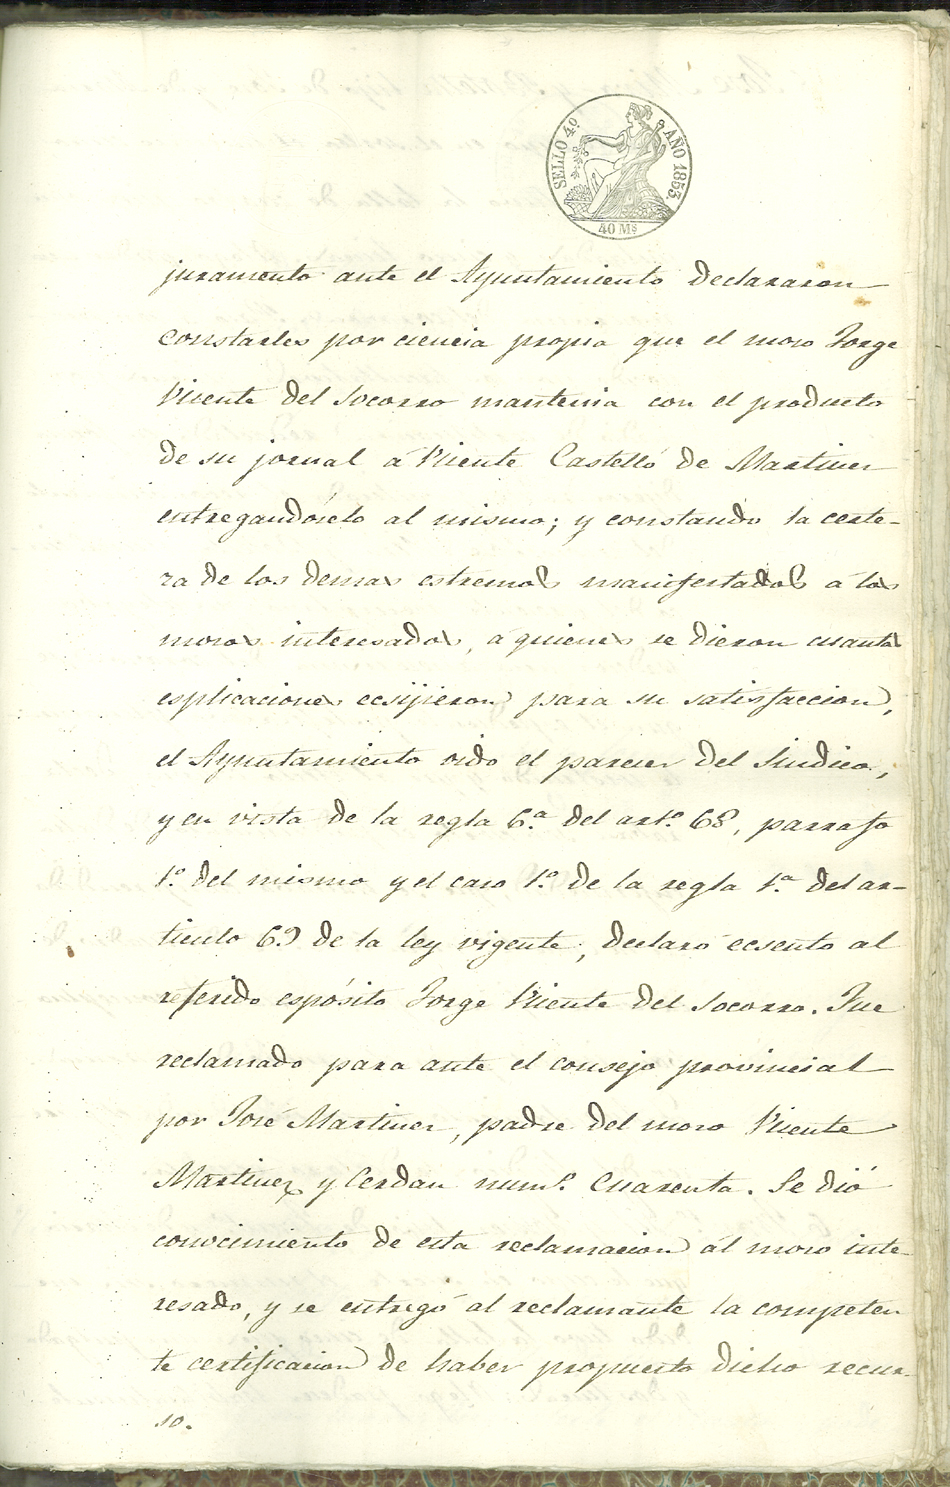 SELLO 4º AÑO 1853
40 Ms
juramento ante el Ayuntamiento declararon
constarles por ciencia propia que el moso Jorge
Vicente del Socorro mantenia con el producto
de su jornal á Vicente Castelló de Martinez
entregandóselo al mismo; y constando la certe-
za de los demas estremos manifestados á los
mosos interesados, á quienes se dieron cuantas
esplicaciones ecsijieron para su satisfaccion,
el Ayuntamiento oido el parecer del Sindico,
y en vista de la regla 6.ª del art.º 68, parrafo
1.º del mismo y el caso 1.º de la regla 1.ª del ar-
ticulo 69 de la ley vigente, declaró ecsento al
referido espósito Jorge Vicente del Socorro. Fue
reclamado para ante el consejo provincial
por José Martinez, padre del moso Vicente
Martinez y Cerdan num.º cuarenta. Se dió
conocimiento de esta reclamacion ál moso inte-
resado, y se entregó al reclamante la competen
te certificacion de haber propuesto dicho recur-
so.